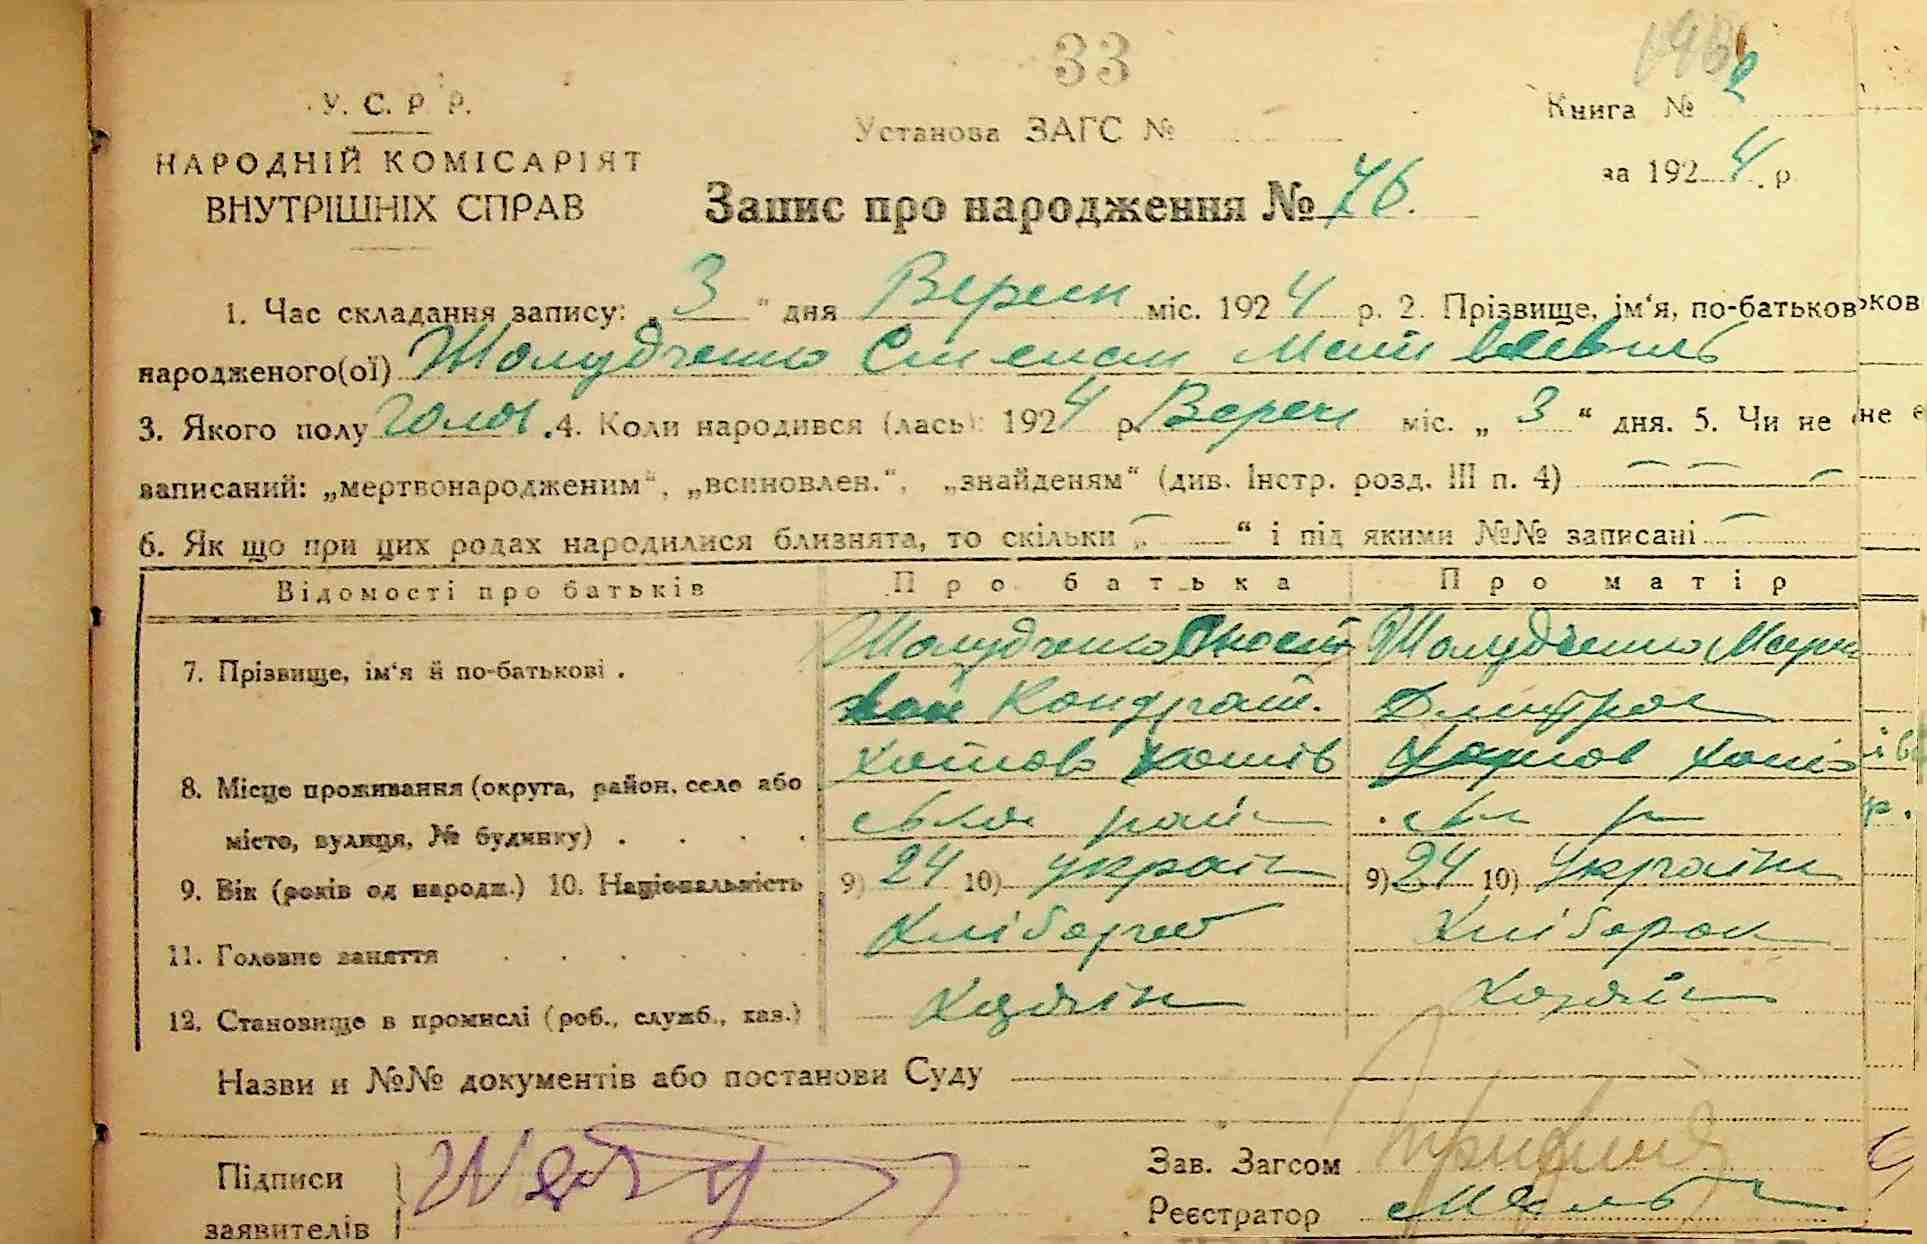 33
У. С. Р Р.
НАРОДНІЙ КОМІСАРІЯТ
ВНУТРІШНІХ СПРАВ
Установа ЗАГС №
Книга № 2
за 1924 . р
Запис про народження № 76.
1. Час складання запису: „ 3 “ дня Вересн міс. 1924 р. 2. Прізвище, ім‘я, по-батьков
народженого(ої) Шолудченко Степан
3. Якого полу Чолов. 4. Коли народився (лась): 1924 р. Вересн міс. „ 3 “ дня. 5. Чи не
записаний: „мертвонародженим“, „всиновлен.“, „знайденям“ (див. Інстр. розд. III п. 4)
6. Як що при цих родах народилися близнята, то скільки „ — “ і під якими №№ записані —
Відомості про батьків Про батька Про матір
7. Прізвище, ім‘я й по-батькові . Шолудченко Шолудченко
Кондрат. Дмитров
8. Місце проживання (округа, район, село або Хотов Хотів Хотов Хотів
місто, вулиця, № будинку) . . . . ськ рай ськ р
9. Вік (років од народж.) 10. Національність 9) 24 10) україн 9) 24 10) україн
11. Головне заняття . . . . . . Хлібороб Хлібороб
12. Становище в промислі (роб., служб., хаз.) Хазяїн Хазяїн
Назви и №№ документів або постанови Суду
Підписи
заявителів
Зав. Загсом
Реєстратор